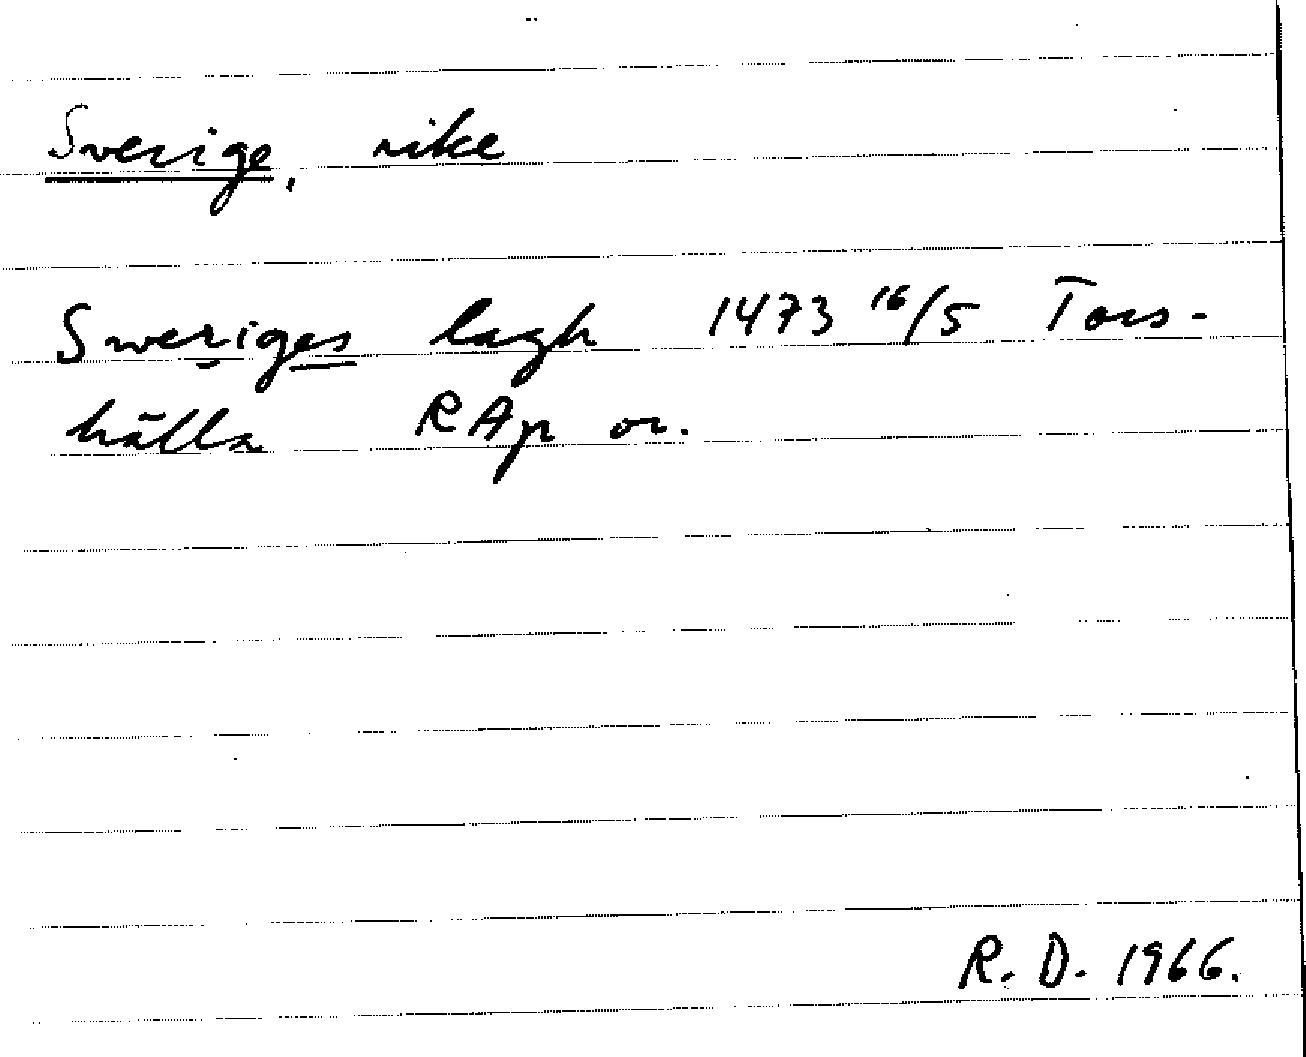 Sverige, rike
Sweriges lagh 1473 16/5 Tors-
hälla RAp or.
R. D. 1966.